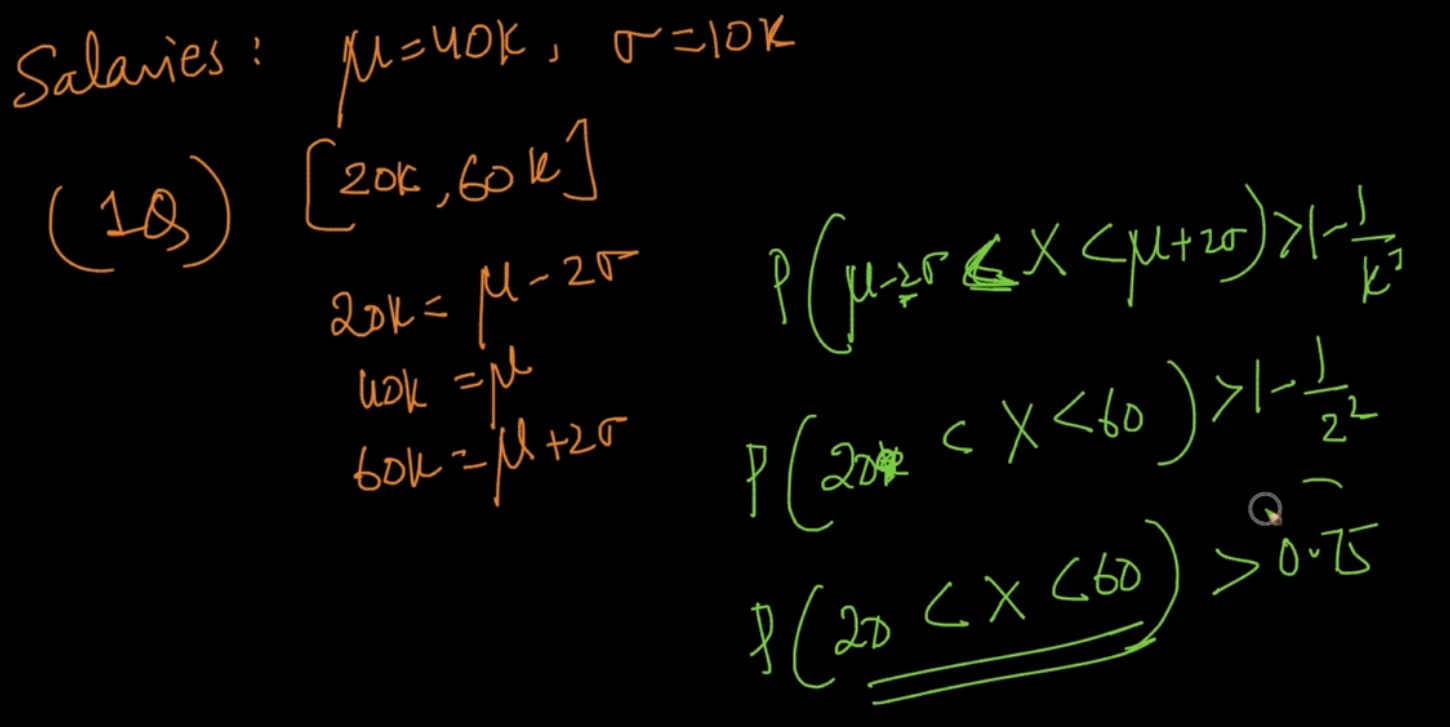 Salaries: μ=40K, σ=10K
(1Q) [20K, 60K]
20K = μ-2σ
40K = μ
60K = μ+2σ
P(μ-2σ < X < μ+2σ) > 1 - 1/k²
P(20 < X < 60) > 1 - 1/2²
P(20 < X < 60) > 0.75